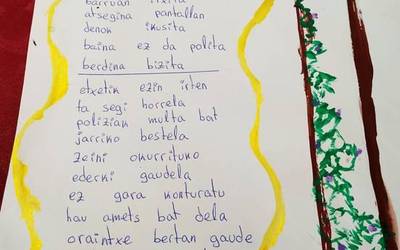 barruan itxita
atsegina pantallan
denok ikusita
baina ez da polita
berdina bizita
etxetik ezin irten
ta segi horrela
poliziak multa bat
jarriko bestela
zeini okurrituko
ederki gaudela
ez gara konturatu
hau amets bat dela
oraintxe bertan gaude